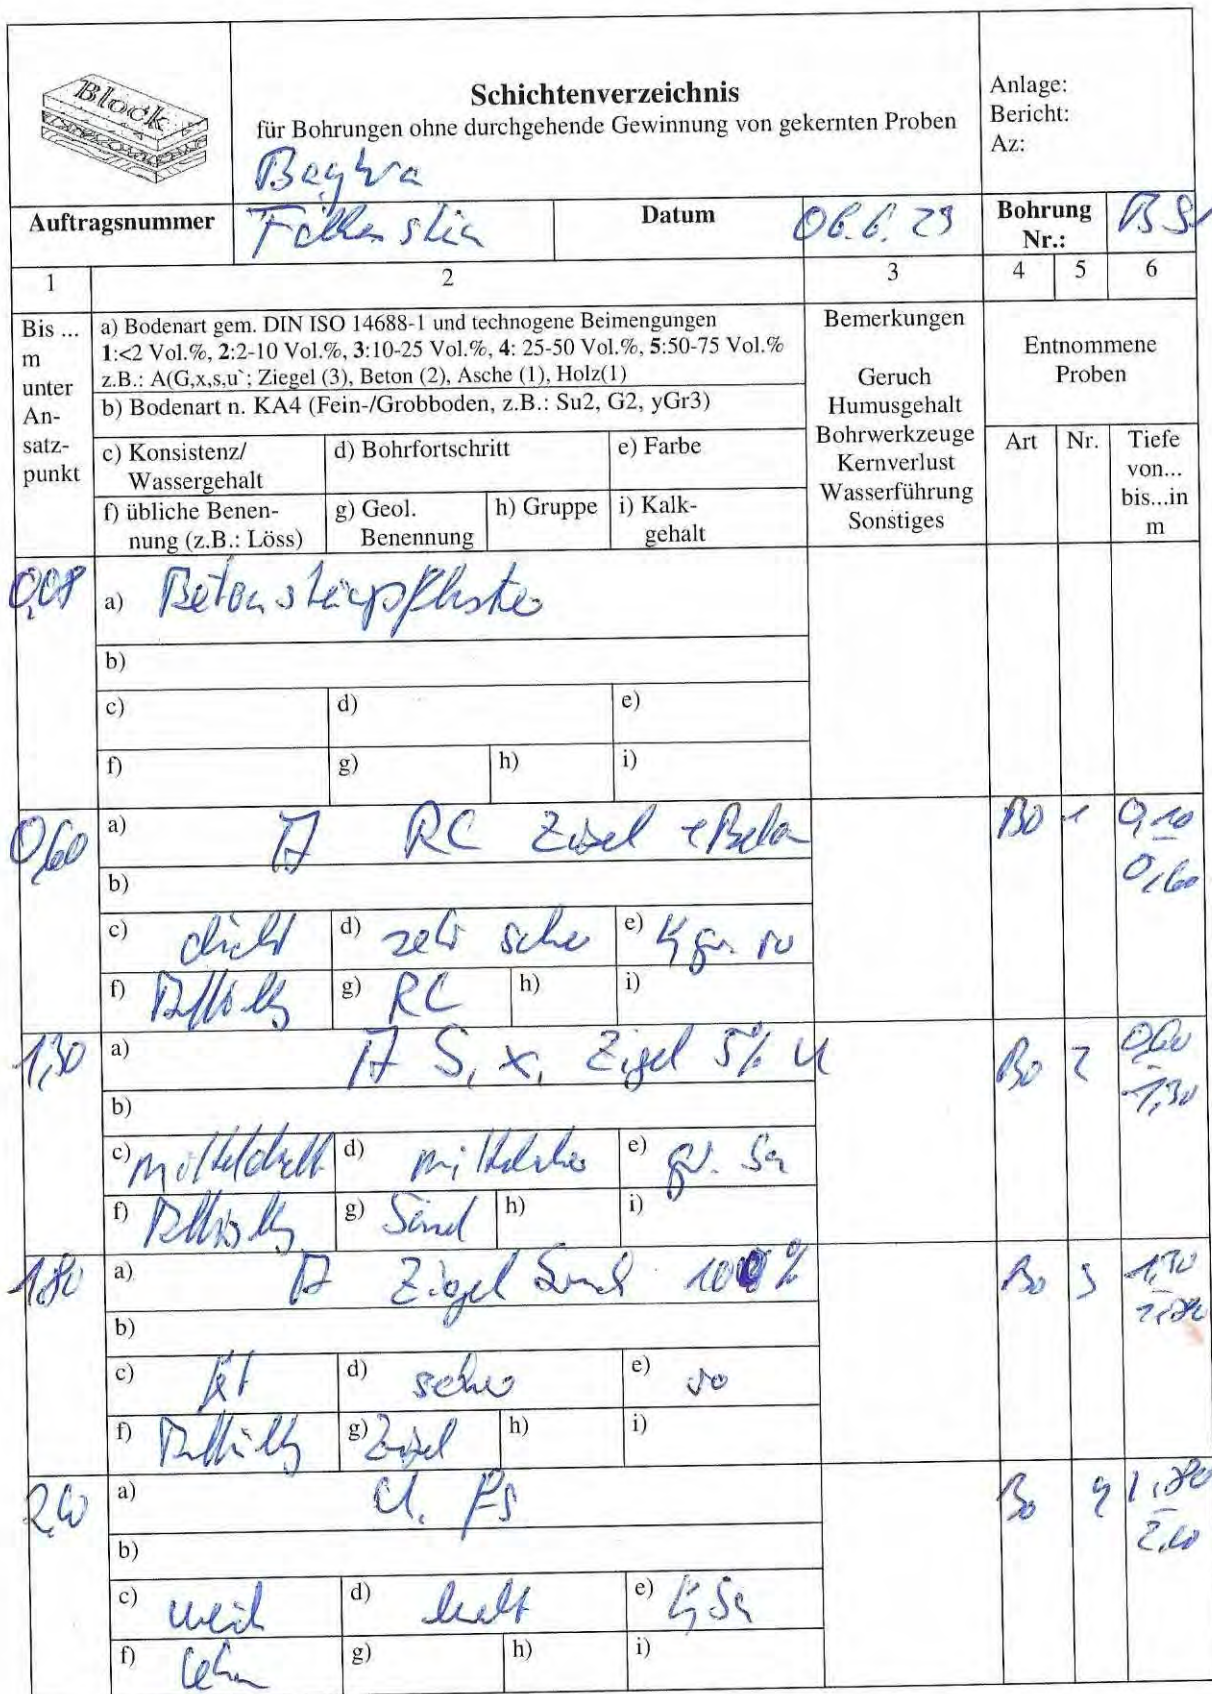 Block
Schichtenverzeichnis
für Bohrungen ohne durchgehende Gewinnung von gekernten Proben
Anlage:
Bericht:
Az:
Auftragsnummer
Datum
06.6.23
Bohrung
Nr.:
BS1
1
2
3
4
5
6
Bis ...
m
unter
An-
satz-
punkt
a) Bodenart gem. DIN ISO 14688-1 und technogene Beimengungen
1:<2 Vol.%, 2:2-10 Vol.%, 3:10-25 Vol.%, 4: 25-50 Vol.%, 5:50-75 Vol.%
z.B.: A(G,x,s,u`; Ziegel (3), Beton (2), Asche (1), Holz(1)
b) Bodenart n. KA4 (Fein-/Grobboden, z.B.: Su2, G2, yGr3)
c) Konsistenz/
Wassergehalt
d) Bohrfortschritt
e) Farbe
f) übliche Benen-
nung (z.B.: Löss)
g) Geol.
Benennung
h) Gruppe
i) Kalk-
gehalt
Bemerkungen
Geruch
Humusgehalt
Bohrwerkzeuge
Kernverlust
Wasserführung
Sonstiges
Entnommene
Proben
Art
Nr.
Tiefe
von...
bis...in
m
0,08
a) Betonsteinpflaster
b)
c)
d)
e)
f)
g)
h)
i)
0,60
a) A RC Ziegel + Beton
Bo 1 0,10
- 0,60
b)
c) dicht
d) sehr schwer
e)
f) Auffüllung
g) RC
h)
i)
1,30
a) A S, x, Ziegel 5% u
Bo 2 0,60
- 1,30
b)
c) mitteldicht
d) mittelschwer
e)
f) Auffüllung
g) Sand
h)
i)
1,80
a) A Ziegel Sand 100%
Bo 3 1,30
- 1,80
b)
c)
d) schwer
e) ro
f) Auffüllung
g) Ziegel
h)
i)
a) U, fs
Bo 4 1,80
b)
c) weich
d) leicht
e)
f) Lehm
g)
h)
i)